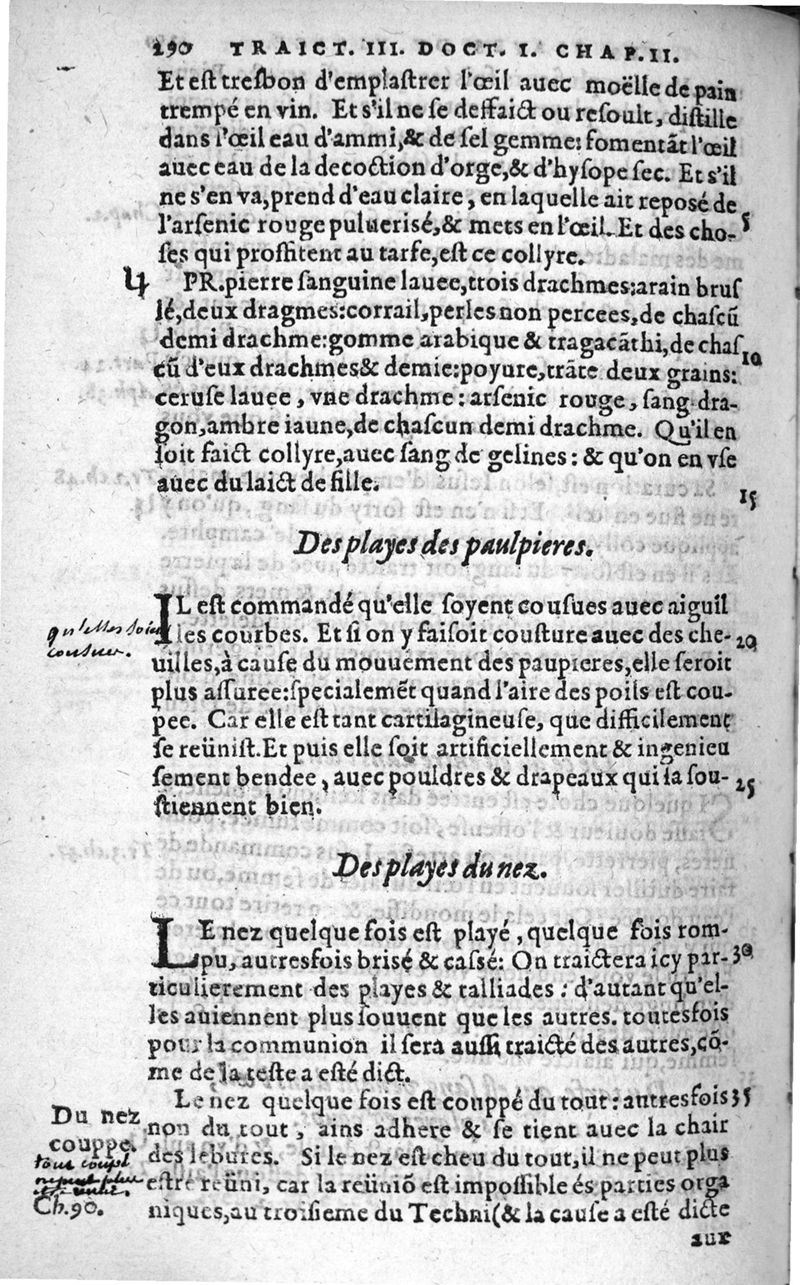 290 TRAICT. III. DOCT. I. CHAP. II.
Et est tresbon d'emplastrer l'œil auec moëlle de pain
trempé en vin. Et s'il ne se deffaict ou resoult, distille
dans l'œil eau d'ammi,& de sel gemme: fomentãt l'œil
auec eau de la decoction d'orge,& d'hysope sec. Et s'il
ne s'en va, prend d'eau claire, en laquelle ait reposé de
l'arsenic rouge puluerisé,& mets en l'œil. Et des cho- 5
ses qui proffitent au tarfe, est ce collyre.
4 PR. pierre sanguine lauee, trois drachmes: arain brus
lé, deux dragmes: corrail, perles non percees, de chascũ
demi drachme: gomme arabique & tragacãthi, de chas
cũ d'eux drachmes & demie: poyure, trãte deux grains: 10
ceruse lauee, vne drachme: arsenic rouge, sang dra-
gon, ambre iaune, de chascun demi drachme. Qu'il en
soit faict collyre, auec sang de gelines: & qu'on en vse
auec du laict de fille. 15
Des playes des paulpieres.
IL est commandé qu'elle soyent cousues auec aiguil
qu'elles soient
les courbes. Et si on y faisoit cousture auec des che- 20
cousues.
uilles, à cause du mouuement des paupieres, elle seroit
plus assuree: specialemẽt quand l'aire des poils est cou-
pee. Car elle est tant cartilagineuse, que difficilement
se reünist. Et puis elle soit artificiellement & ingenieu
sement bendee, auec pouldres & drapeaux qui la sou- 25
stiennent bien.
Des playes du nez.
LE nez quelque fois est playé, quelque fois rom-
pu, autresfois brisé & cassé: On traictera icy par- 30
ticulierement des playes & talliades: d'autant qu'el-
les auiennent plus souuent que les autres. toutesfois
pour la communion il sera aussi traicté des autres, cõ-
me de la teste a esté dict.
Le nez quelque fois est couppé du tout: autresfois 35
Du nez
non du tout, ains adhere & se tient auec la chair
couppe.
des lebures. Si le nez est cheu du tout, il ne peut plus
tout coupé
estre reüni, car la reüniõ est impossible és parties orga
Ch. 90.
niques, au troisieme du Techni (& la cause a esté dicte
aux